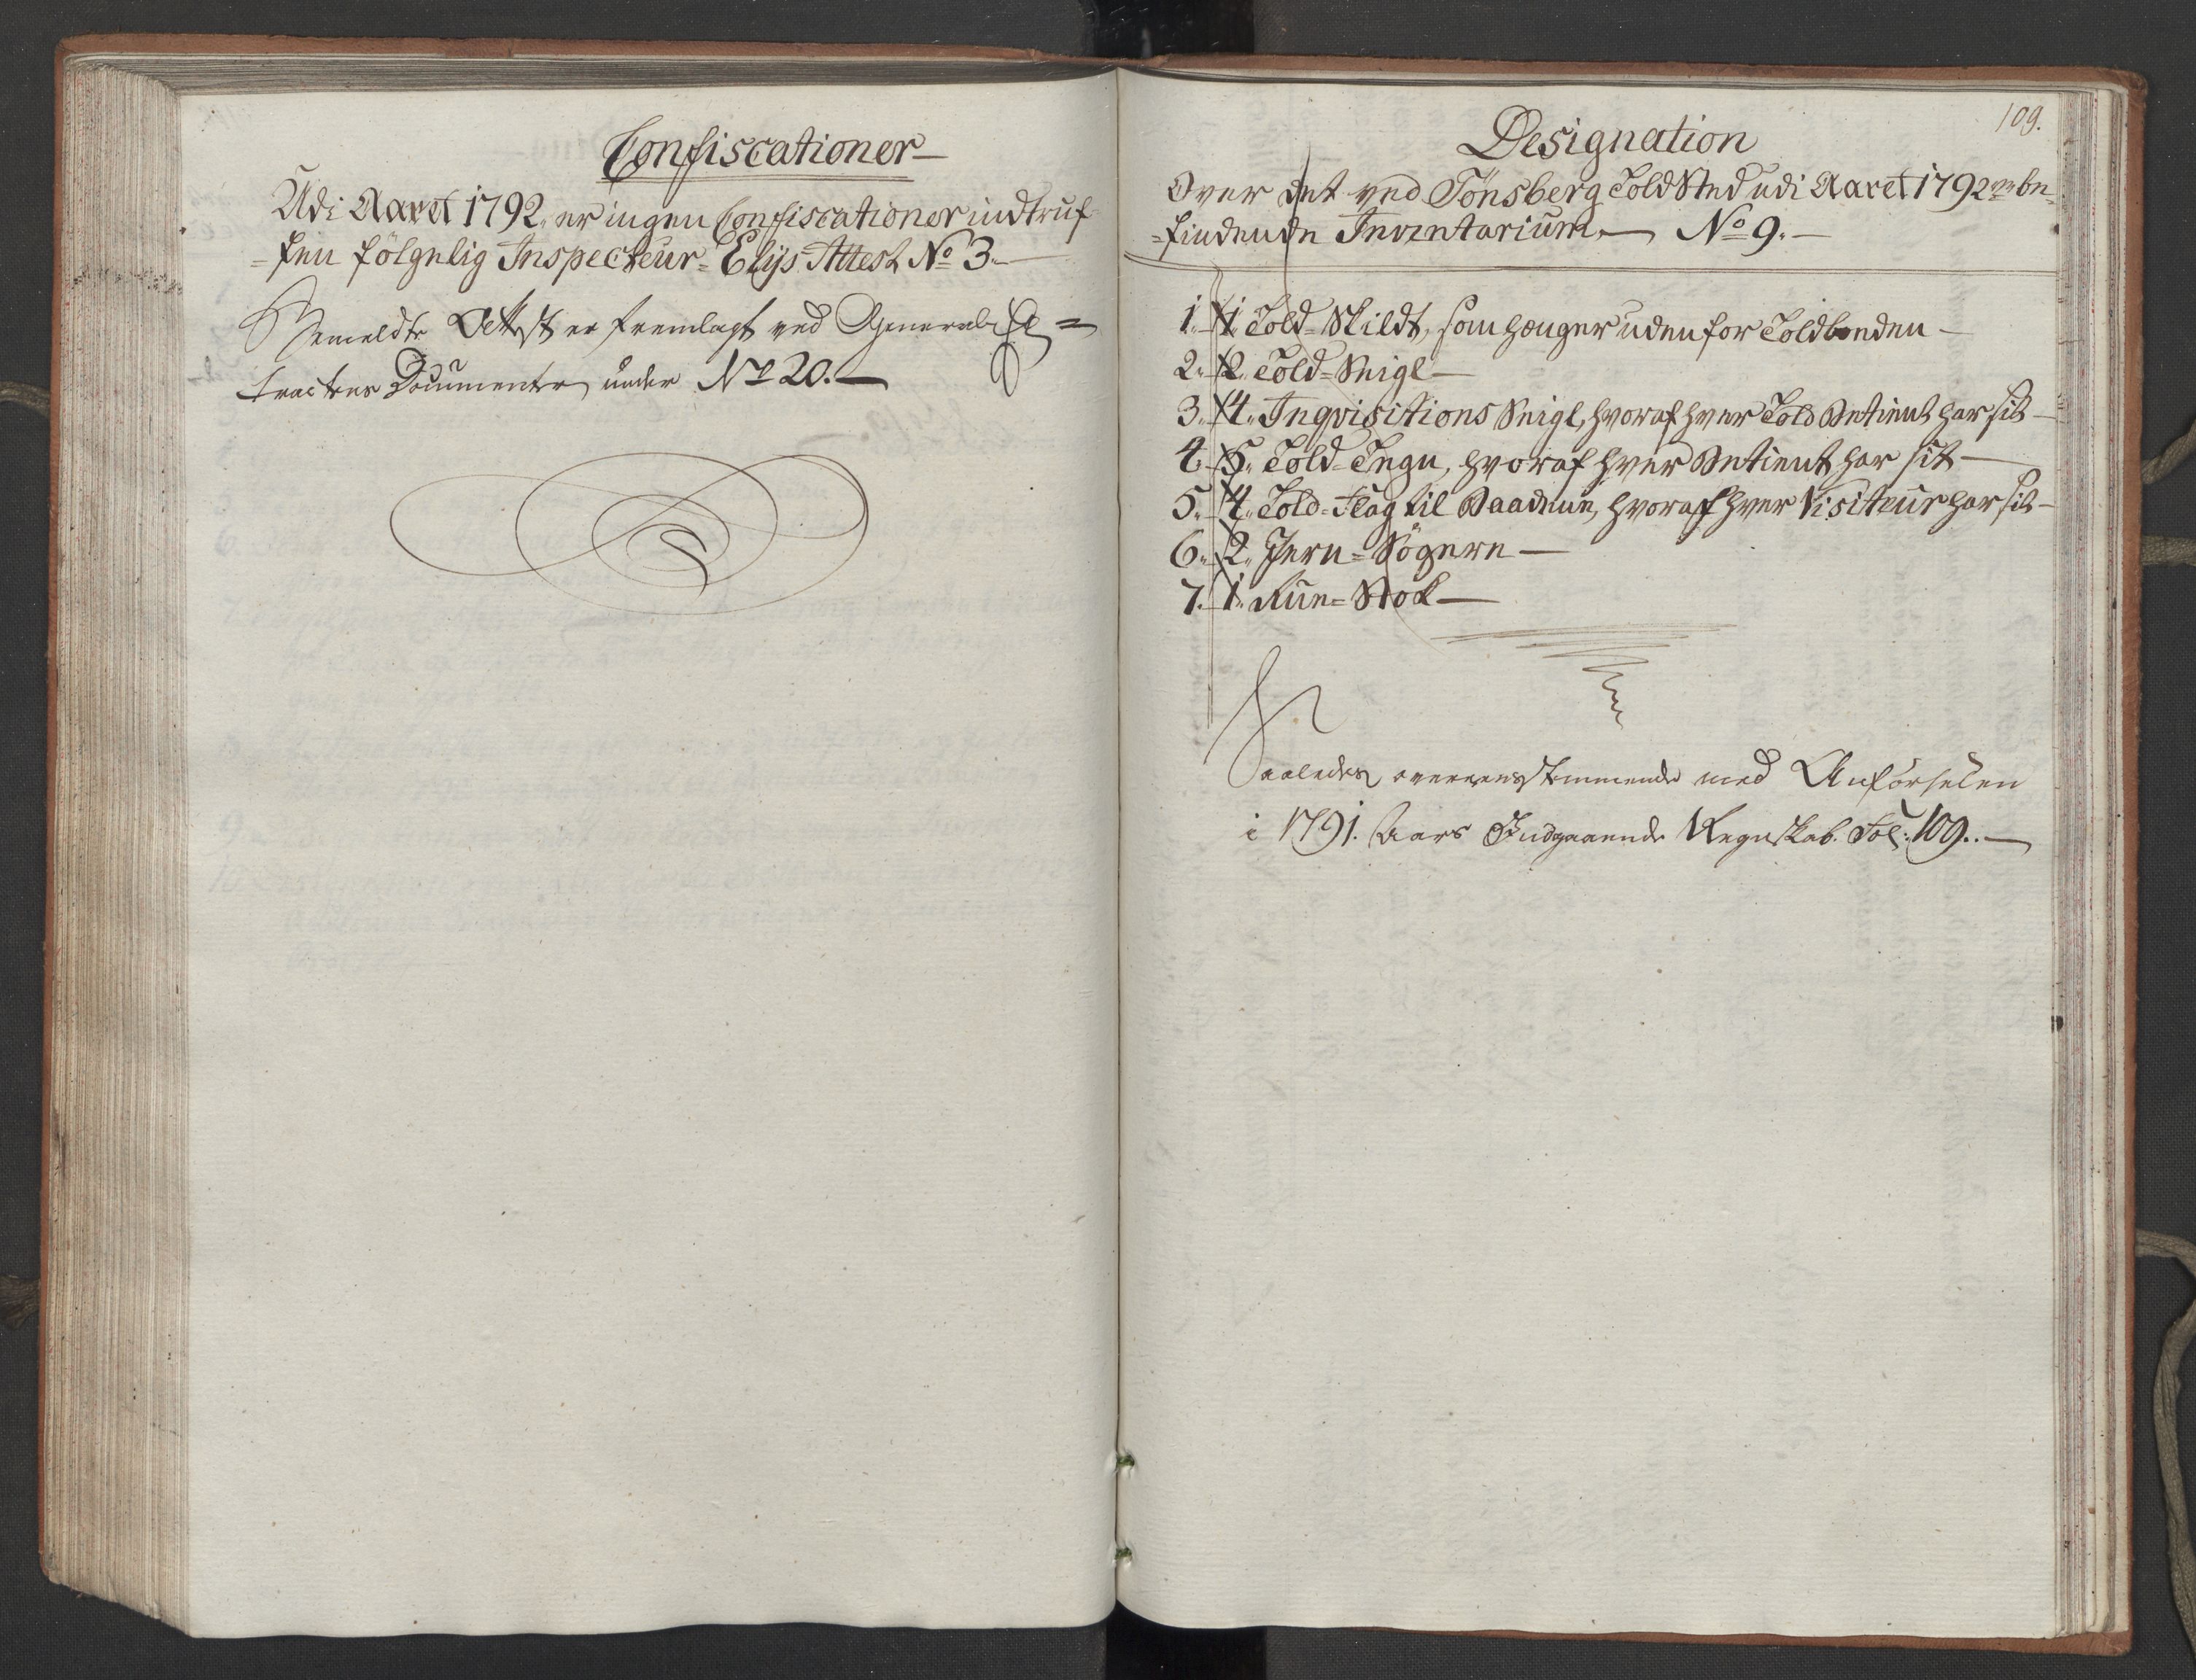 Confiscationer
Udi Aaret 1792 er ingen Confiscationer indtruf-
=fen følgelig Inspecteur Elÿs Attest No 3.
Bemeldte Attest er fremlagt ved General Ex=
tractens Documenter under No 20.
109.
Designation
Over det ved Tönsberg Told Sted udi Aaret 1792 be-
=findende Inventarium No 9.
1. 1. Told-Skildt, som hænger uden for Toldboeden
2. 2. Told-Seigl
3. 4. Inqvisitions Seigl, hvoraf hver Told Betient har sit
4. 5. Told-Tegn, hvoraf hver Betient har sit
5. 4. Told-Flag til Baadene, hvoraf hver Visiteur har sit
6. 2. Jern-Sögere
7. 1. Rün-Stok
Saaledes overeensstemmende med Anförselen
i 1791. Aars Indgaaende Regnskab. Fol: 109.